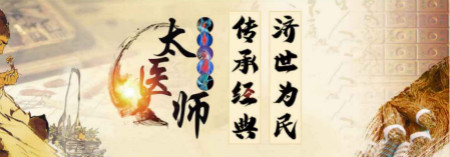 太医师
传承经典
济世为民